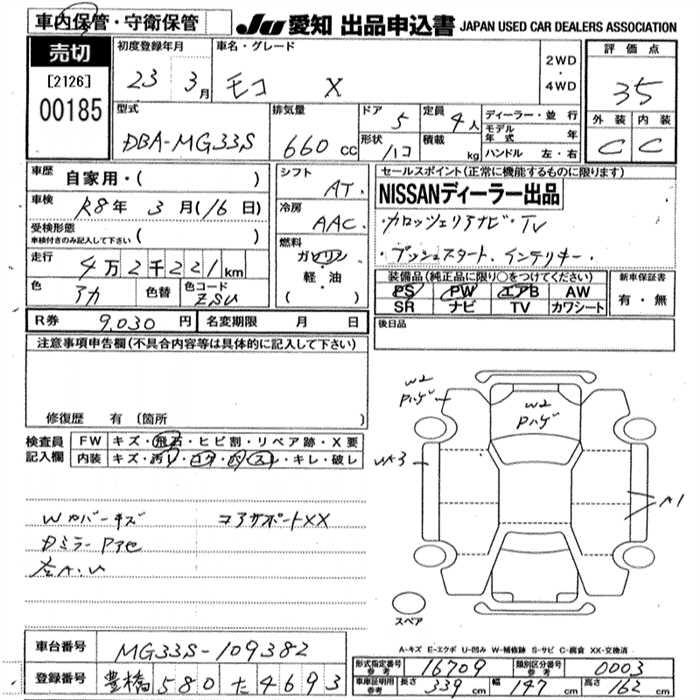 車内保管・守衛保管 JU 愛知 出品申込書 JAPAN USED CAR DEALERS ASSOCIATION
売切
[2126]
00185
初度登録年月
23 3月
車名・グレード
モコ X
2WD
・
4WD
評価点
35
外装 内装
C C
型式
DBA-MG33S
排気量
660 cc
ドア 5
形状 ハコ
定員 4人
積載 kg
ディーラー・並行
モデル年式 年
ハンドル 左・右
車歴
自家用・( )
車検 R8年 3月(16日)
受検形態
車検付きのみ記入して下さい ( )
走行 4万2千221km
色 アカ 色替 色コード ZSU
シフト AT.
冷房 AAC
燃料
ガソリン
軽・油
( )
セールスポイント(正常に機能するものに限ります)
NISSANディーラー出品
・カロッツェリアナビ・TV
・プッシュスタート インテリキー・
装備品(純正品に限り○をつけてください)
PS PW エアB AW
SR ナビ TV カワシート
新車保証書
有・無
後日品
R券 9,030円 名変期限 月 日
注意事項申告欄(不具合内容等は具体的に記入して下さい)
修復歴 有 (箇所 )
検査員
記入欄
FW キズ・飛石・ヒビ割・リペア跡・X要
内装 キズ・汚レ・コゲ・穴・スレ・キレ・破レ
Wカバーキズ コアサポートXX
Dミラー Pアセ
左A.U
W2
Pハゲ
W2
Pハゲ
A1
スペア
A-キズ E-エクボ U-凹み W-補修跡 S-サビ C-腐食 XX-交換済
車台番号 MG33S-109382
登録番号 豊橋 580 た 4693
形式指定番号 参考 16709 類別区分番号 参考 0003
車庫証明用 参考 長さ 339cm 幅 147cm 高さ 162cm